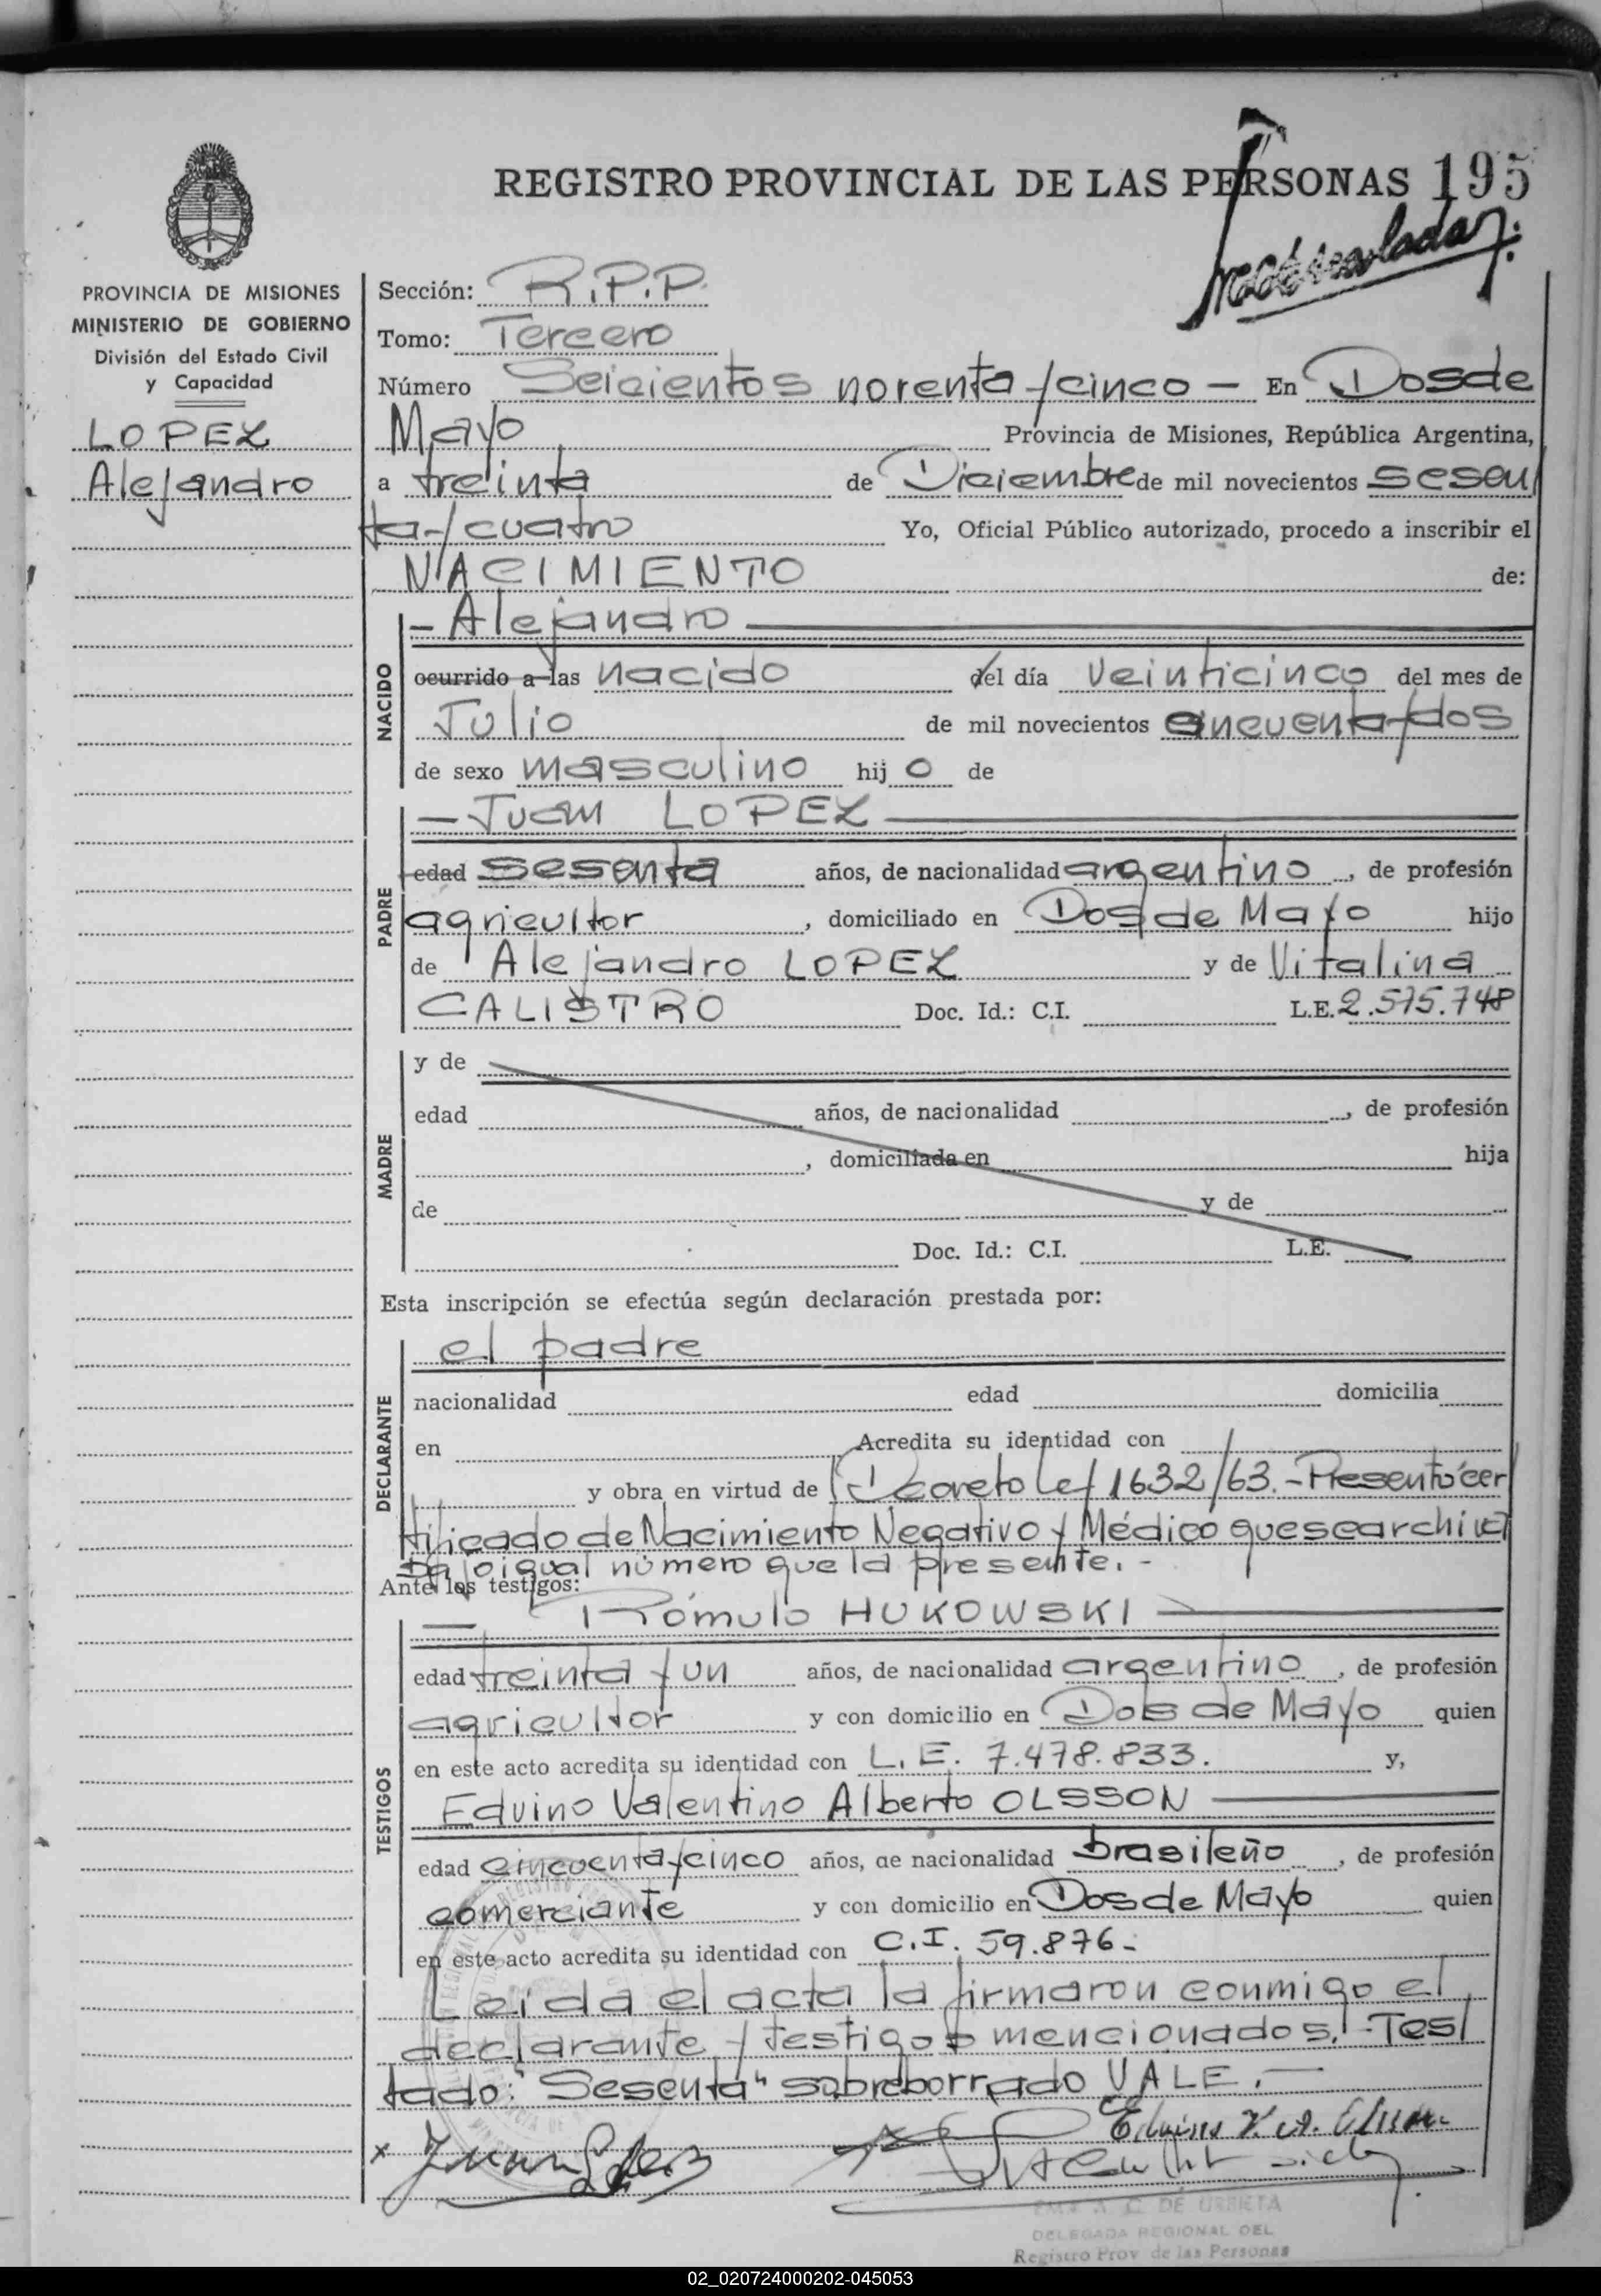 REGISTRO PROVINCIAL DE LAS PERSONAS 195
PROVINCIA DE MISIONES
MINISTERIO DE GOBIERNO
División del Estado Civil
y Capacidad
LOPEZ
Alejandro
Sección: R.P.P.
Tomo: Tercero
Número Seicientos noventa y cinco - En Dos de
Mayo Provincia de Misiones, República Argentina,
a treinta de Diciembre de mil novecientos sesen
ta y cuatro Yo, Oficial Público autorizado, procedo a inscribir el
NACIMIENTO de:
NACIDO
- Alejandro
ocurrido a las nacido del día veinticinco del mes de
Julio de mil novecientos cincuenta y dos
de sexo masculino hijo de
PADRE
- Juan LOPEZ
edad sesenta años, de nacionalidad argentino, de profesión
agricultor, domiciliado en Dos de Mayo hijo
de Alejandro LOPEZ y de Vitalina
CALISTRO Doc. Id.: C.I. L.E. 2.575.748
MADRE
y de
edad años, de nacionalidad, de profesión
, domiciliada en hija
de y de
Doc. Id.: C.I. L.E.
Esta inscripción se efectúa según declaración prestada por:
DECLARANTE
el padre
nacionalidad edad domicilia
en Acredita su identidad con
y obra en virtud de Decreto Ley 1632/63.- Presentó cer
tificado de Nacimiento Negativo y Médico que se archiva
bajo igual número que la presente. -
Ante los testigos:
TESTIGOS
Rómulo HUKOWSKI
edad treinta y un años, de nacionalidad argentino, de profesión
agricultor y con domicilio en Dos de Mayo quien
en este acto acredita su identidad con L.E. 7.478.833. y,
Edvino Valentino Alberto OLSSON
edad cincuenta y cinco años, de nacionalidad brasileño, de profesión
comerciante y con domicilio en Dos de Mayo quien
en este acto acredita su identidad con C.I. 59.876-
Leída el acta la firmaron conmigo el
declarante y testigos mencionados. - Tes
tado: "Sesenta" sobreborrado VALE. -
x Juan Lopez
DE URBIETA
DELEGADA REGIONAL DEL
Registro Prov de las Personas
02_020724000202-045053